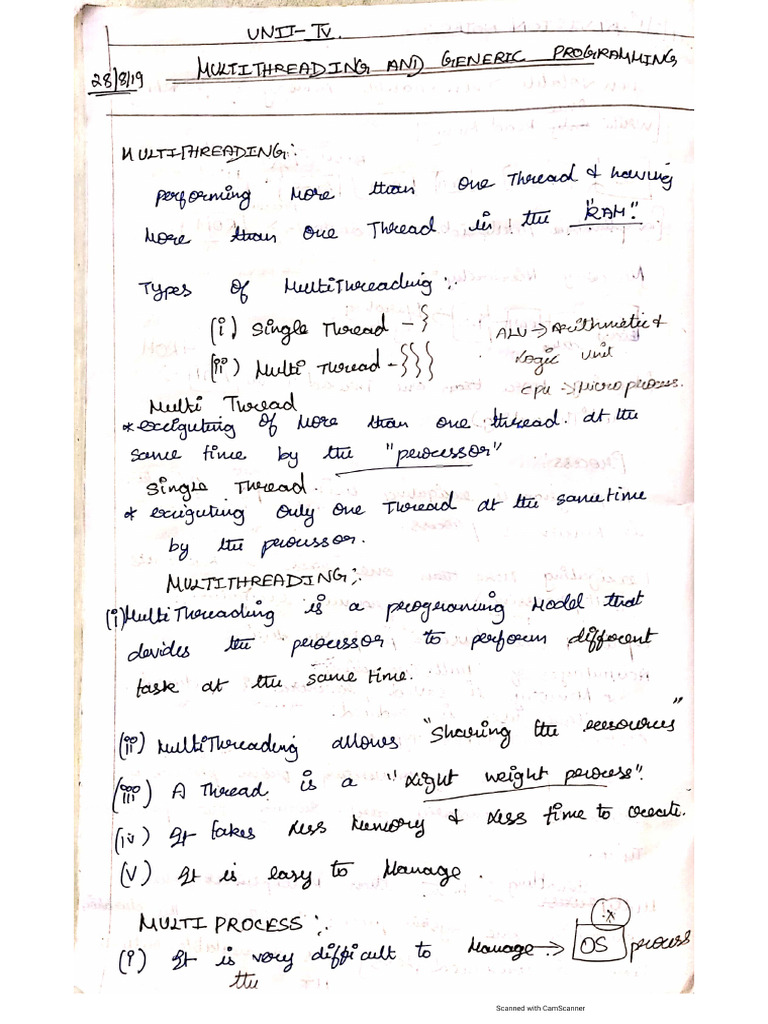 UNIT-IV.
28/8/19 MULTITHREADING AND GENERIC PROGRAMMING
MULTITHREADING:
performing More than One Thread & having
More than One Thread in the "RAM".
Types of MultiThreading:
(i) Single Thread -
(ii) Multi Thread -
ALU → Arithmetic &
Logic Unit
CPU → Microprocess.
Multi Thread
* exiguting of More than one thread at the
same time by the "processor"
Single Thread.
* exiguting Only One Thread at the same time
by the processor.
MULTITHREADING:
(i) MultiThreading is a programing Model that
devides the processor to perform different
task at the same time.
(ii) MultiThreading allows "Sharing the resources"
(iii) A Thread is a "Light weight process".
(iv) It takes Less Memory & Less time to create.
(v) It is easy to Manage.
MULTI PROCESS:
(i) It is very difficult to Manage → OS process
the
Scanned with CamScanner